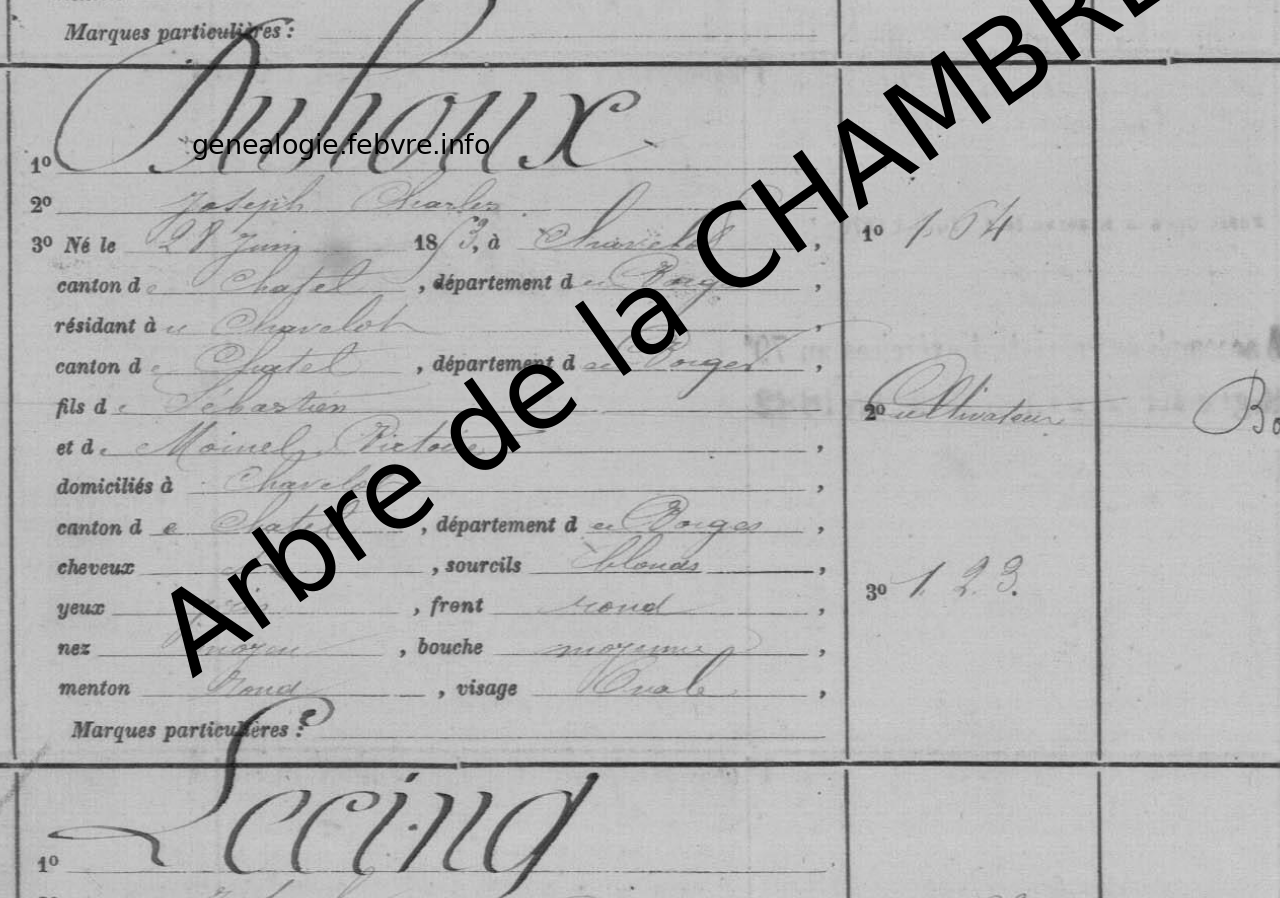 Marques particulières :
1º Duhoux
genealogie.febvre.info
2º Joseph Charles
3º Né le 28 Juin 1853, à Chavelot,
1º 154
canton de Chatel, département des Vosges,
résidant à Chavelot,
canton de Chatel, département des Vosges,
fils de Sébastien,
2º Cultivateur
et de Moinel, Victoire,
domiciliés à Chavelot,
canton de Chatel, département des Vosges,
cheveux, sourcils blonds,
3º 1. 2. 3.
yeux gris, front rond,
nez moyen, bouche moyenne,
menton rond, visage Ovale,
Marques particulières :
Arbre de la CHAMBRE
1º Lecing